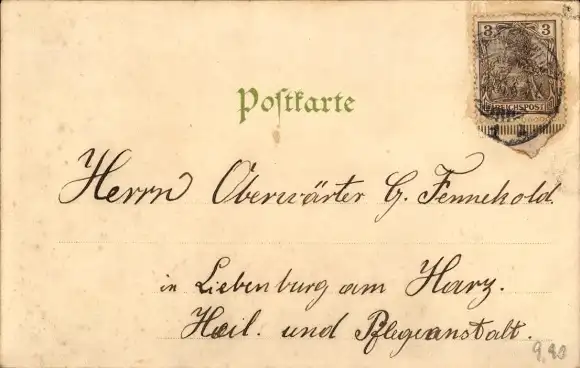 3 3
REICHSPOST
Postkarte
Herrn Oberwärter G. Fennehold.
in Liebenburg am Harz.
Heil. und Pflegeanstalt.
9,90